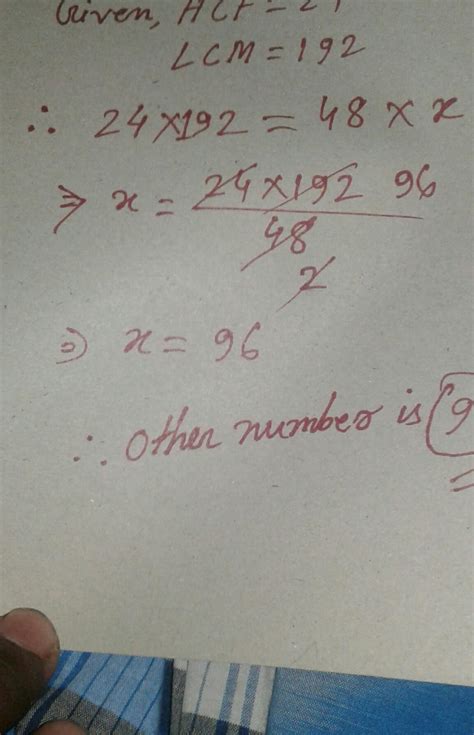 Given, HCF = 24
LCM = 192
∴ 24×192 = 48 × x
⇒ x = 24×192 96
48
2
⇒ x = 96
∴ Other number is 9